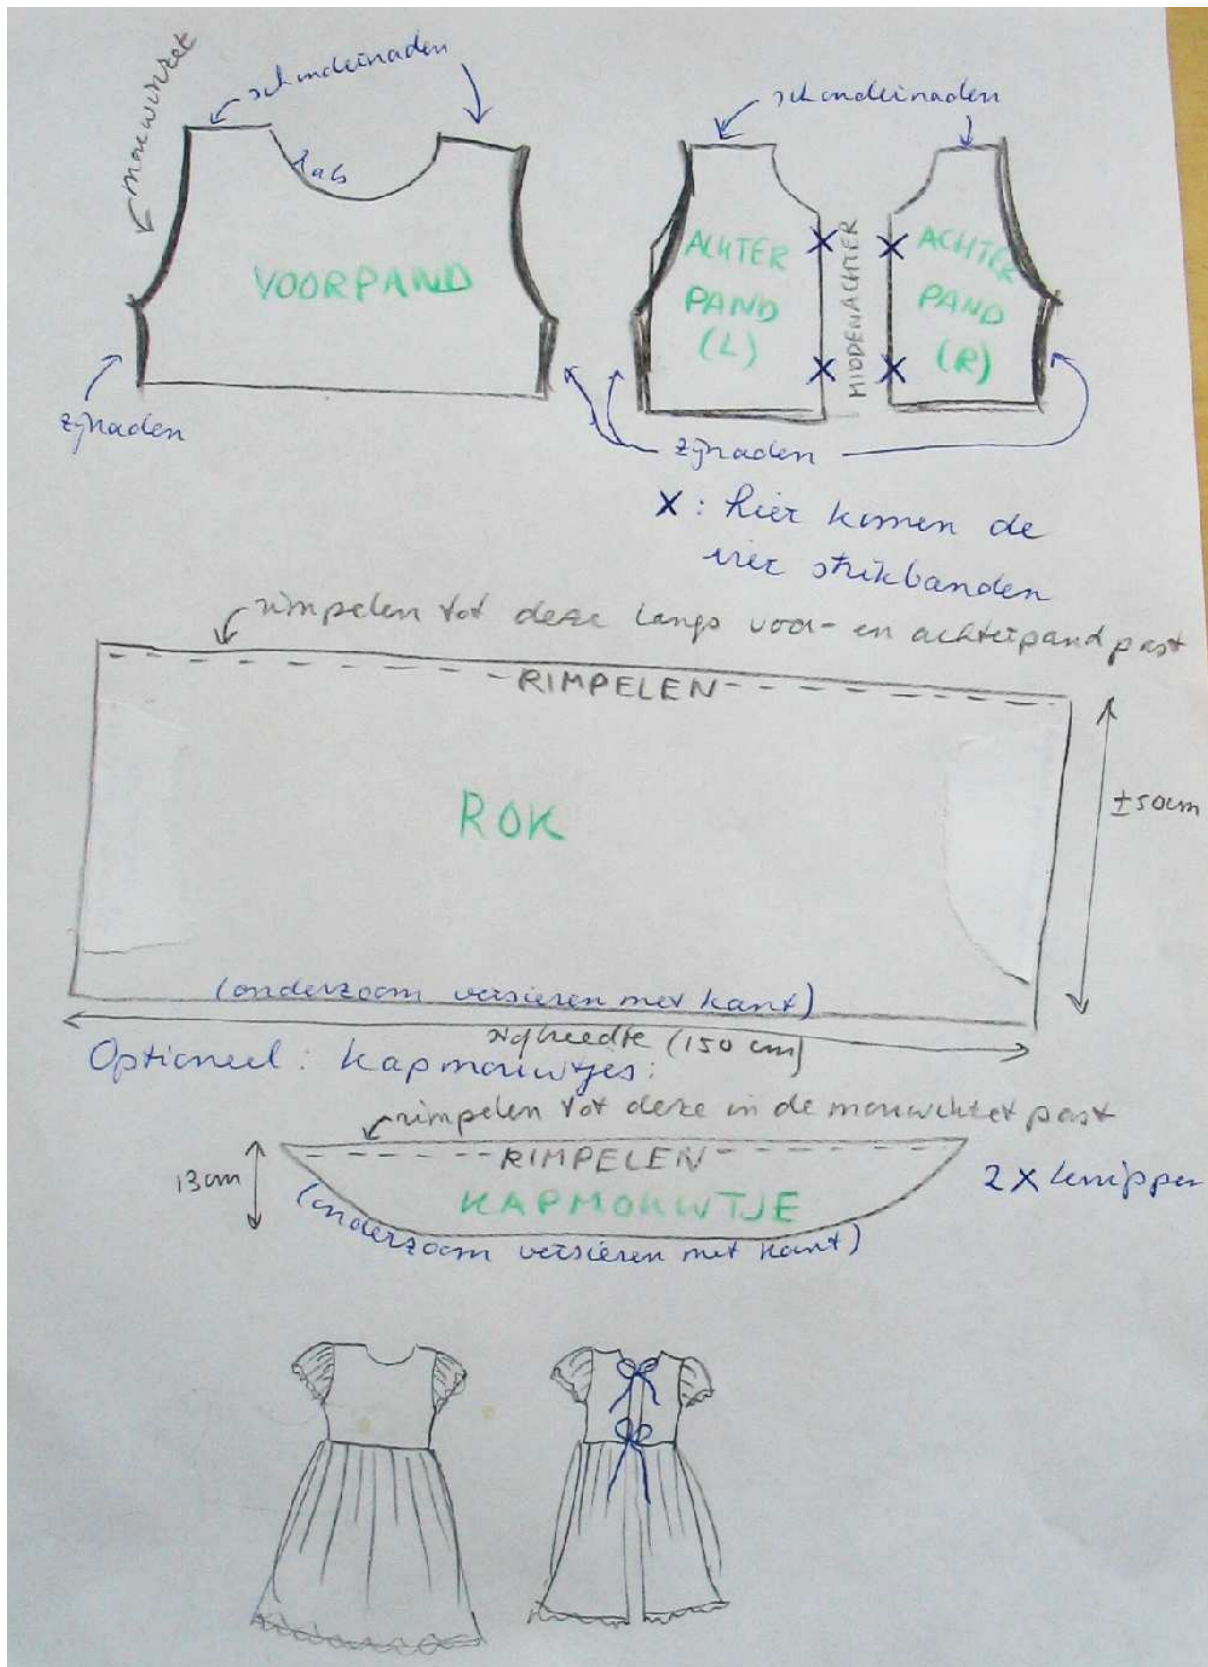 mouwinzet
schoudernaden
hals
VOORPAND
zijnaden
schoudernaden
ACHTER
PAND
(L)
MIDDENACHTER
ACHTER
PAND
(R)
zijnaden
X : hier komen de
vier strikbanden
rimpelen tot deze langs voor- en achterpand past
RIMPELEN
ROK
±50cm
(onderzoom versieren met kant)
stofbreedte (150 cm)
Optioneel: kapmouwtjes:
rimpelen tot deze in de mouwinzet past
RIMPELEN
13cm
KAPMOUWTJE
2X knippen
(onderzoom versieren met kant)